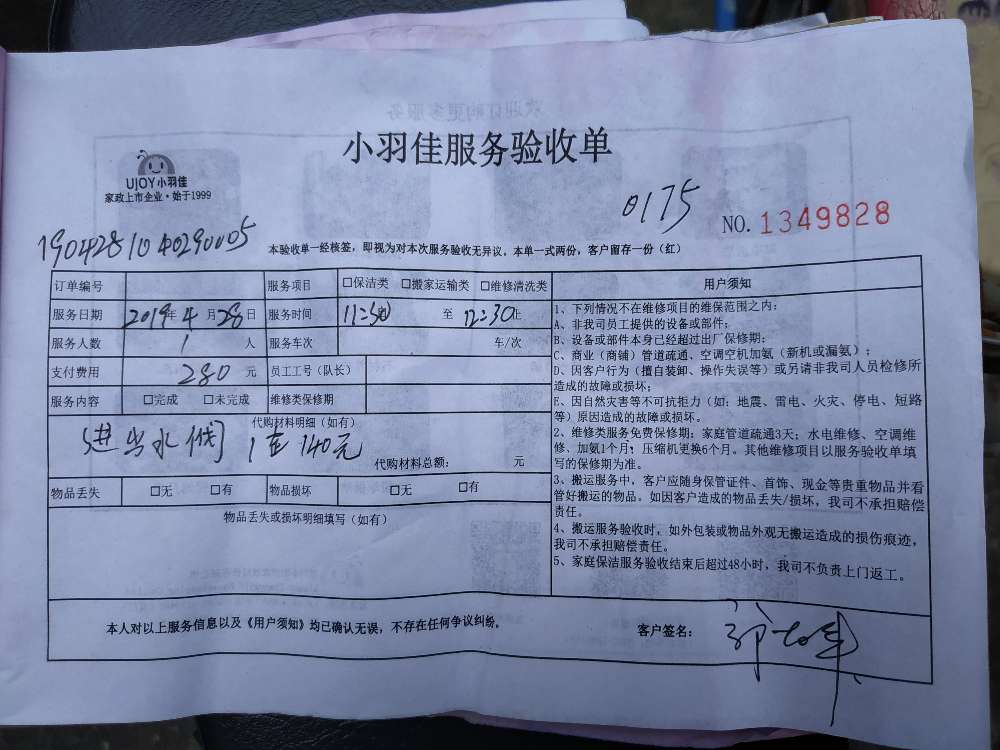 小羽佳服务验收单
UJOY小羽佳
家政上市企业·始于1999
0175
NO.1349828
190428104029005
本验收单一经核签，即视为对本次服务验收无异议。本单一式两份，客户留存一份（红）
订单编号 服务项目 □保洁类 □搬家运输类 □维修清洗类
服务日期 2019年4月28日 服务时间 11:50 至 12:30止
服务人数 1 人 服务车次 车/次
支付费用 280 元 员工工号（队长）
服务内容 □完成 □未完成 维修类保修期
代购材料明细（如有）
进 水 阀 1 140元
代购材料总额： 元
物品丢失 □无 □有 物品损坏 □无 □有
物品丢失或损坏明细填写（如有）
用户须知
1、下列情况不在维修项目的维保范围之内：
A、非我司员工提供的设备或部件；
B、设备或部件本身已经超过出厂保修期；
C、商业（商铺）管道疏通、空调空机加氨（新机或漏氨）；
D、因客户行为（擅自装卸、操作失误等）或另请非我司人员检修所
造成的故障或损坏；
E、因自然灾害等不可抗拒力（如：地震、雷电、火灾、停电、短路
等）原因造成的故障或损坏。
2、维修类服务免费保修期：家庭管道疏通3天；水电维修、空调维
修、加氨1个月；压缩机更换6个月。其他维修项目以服务验收单填
写的保修期为准。
3、搬运服务中，客户应随身保管证件、首饰、现金等贵重物品并看
管好搬运的物品。如因客户造成的物品丢失/损坏，我司不承担赔偿
责任。
4、搬运服务验收时，如外包装或物品外观无搬运造成的损伤痕迹，
我司不承担赔偿责任。
5、家庭保洁服务验收结束后超过48小时，我司不负责上门返工。
本人对以上服务信息以及《用户须知》均已确认无误，不存在任何争议纠纷。
客户签名：